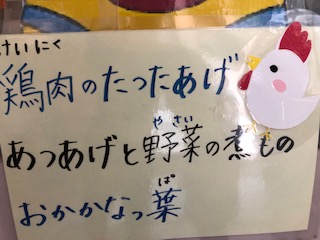 けいにく
鶏肉のたつたあげ
やさい
あつあげと野菜の煮もの
ぱ
おかかなっ葉